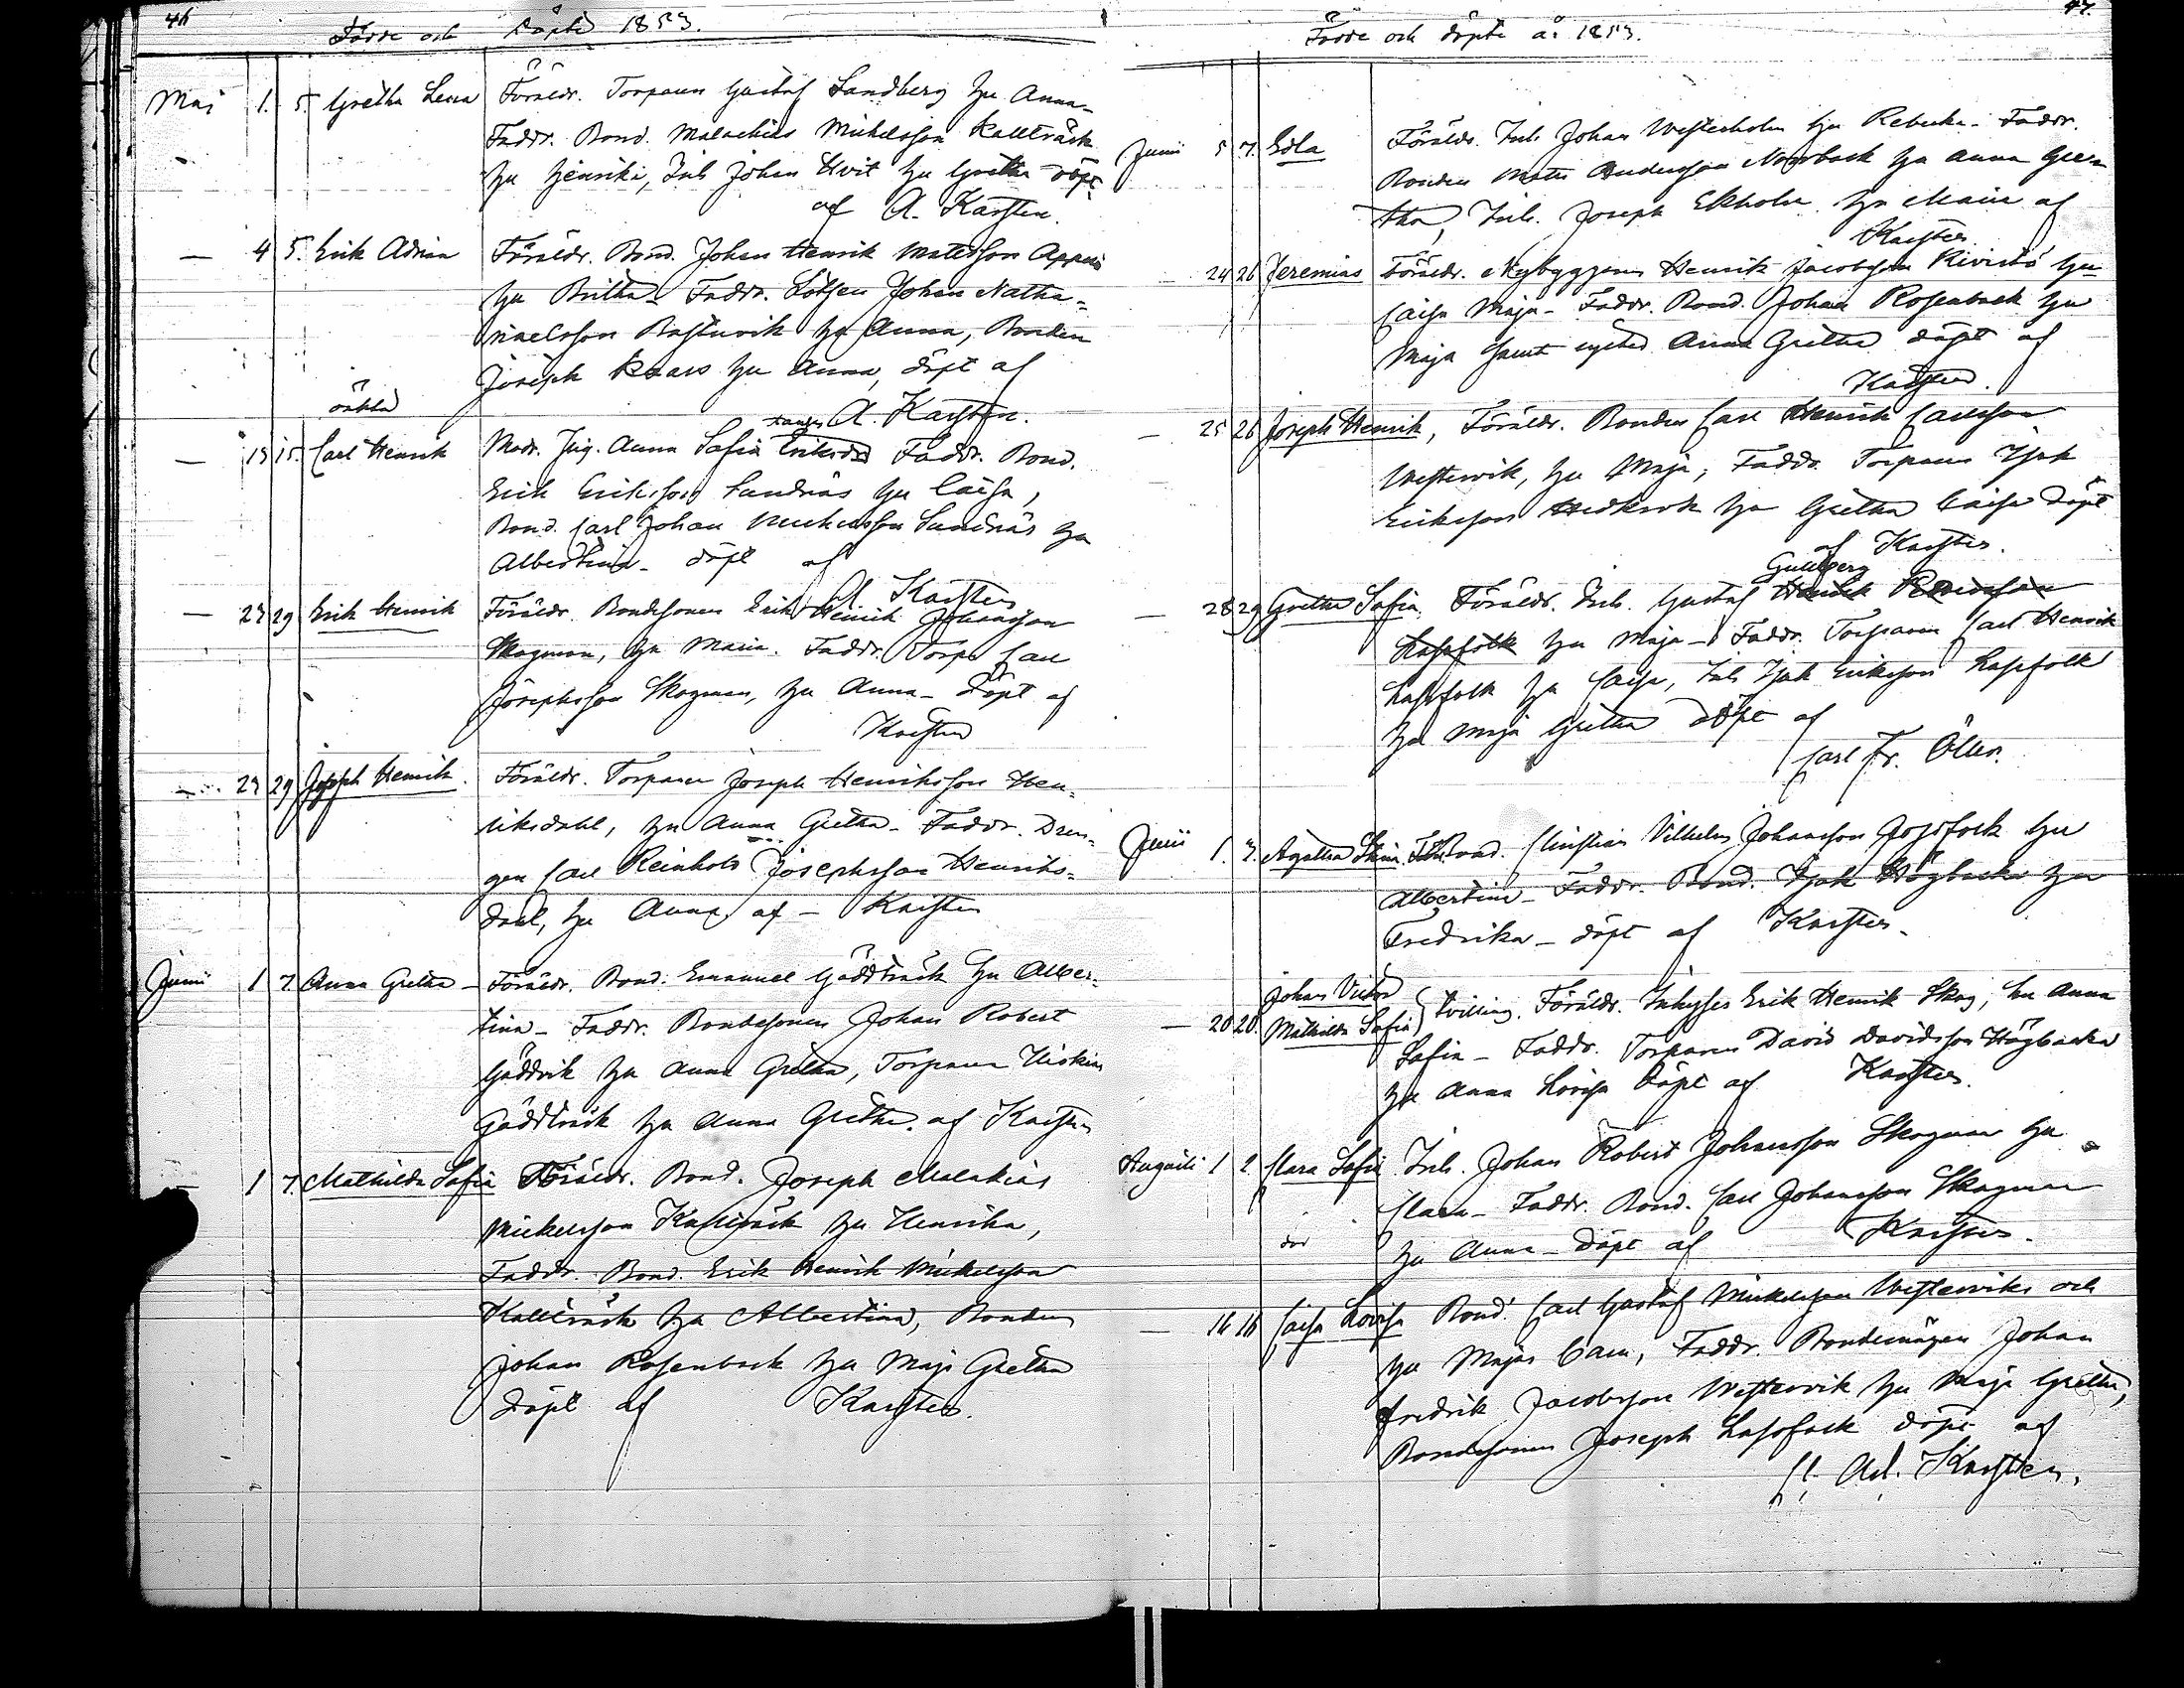 46
Födde och Döpte 1853.
Maj 1. 5. Gretha Lena Föräldr. Torparen Gustaf Sandberg hu Anna-
Faddr. Bond. Malachias Mickelsson Kallträsk
hu Henrika, Inh Johan Hvit hu Gretha döpt
af A. Karsten.
— 4 5. Erik Adrian Föräldr. Bond. Johan Henrik Matsson
hu Britha- Faddr. Lotsen Johan Natha-
naelsson Bastuvik hu Anna, Bonden
Joseph hu Anna, döpt af
A. Karsten.
oäkta
— 13 15. Carl Henrik Modr. Pig. Anna Safia Eriksdr Faddr. Bond.
Erik Eriksson Sandnäs hu Caisa,
Bond. Carl Johan Mickelsson Sandnäs hu
Albertina- döpt af
A Karsten
— 23 29 Erik Henrik Föräldr. Bondesonen Erik Henrik Johansson
Skogman, hu Maria. Faddr. Torp. Carl
Josephsson Skogman, hu Anna- döpt af
Karsten
— 23 29 Joseph Henrik. Föräldr. Torparen Joseph Henriksson Hen-
riksdahl, hu Anna Gretha- Faddr. Dren-
gen Carl Reinhold Josephsson Henriks-
dahl, hu Anna, af - Karsten
Junii 1 7. Anna Gretha - Föräldr. Bond. Emanuel Gäddträsk hu Alber-
tina- Faddr. Bondesonen Johan Robert
Gäddvik hu Anna Gretha, Torparen Hiskias
Gäddträsk hu Anna Gretha. af Karsten
— 1 7. Mathilda Safia Föräldr. Bond. Joseph Malakias
Mickelsson Kallträsk hu Henrika,
Faddr. Bond. Erik Henrik Mickelsson
Kallträsk hu Albertina, Bonden
Johan Rosenback hu Maja Gretha
döpt af Karsten.
47.
Födde och döpte år 1853.
Junii 5 7. Edla Föräldr. Inh. Johan Westerholm hu Rebecka- Faddr.
Bonden Mats Andersson Norrback hu Anna Gre-
tha, Inh. Joseph Ekholm hu Maria af
Karsten.
— 24 26 Jeremias Föräldr. Nybyggaren Henrik Jacobsson Kivistö hu
Caisa Maja- Faddr. Bond. Johan Rosenback hu
Maja samt Anna Gretha döpt af
Karsten.
— 25 26 Joseph Henrik, Föräldr. Bonden Carl Henrik Carlsson
Westervik, hu Maja, Faddr. Torparen Isak
Eriksson Hedkrok hu Gretha Caisa döpt
af Karsten.
Gullberg
— 28 29 Gretha Safia. Föräldr. Inh. Gustaf Henrik
Lassfolk hu Maja- Faddr. Torparen Carl Henrik
Lassfolk hu Caisa, Inh Isak Eriksson Lassfolk
hu Maja Gretha döpt af
Carl Fr.
1. 3. Agatha Bond. Christian Vilhelm Johansson Josfolk hu
Albertina- Faddr. Bond. Isak Högbacka hu
Fredrika- döpt af Karsten.
— 20 20. Johan Victor
Mathilda Safia } tvilling. Föräldr. Inhyses Erik Henrik Skog, hu Anna
Safia- Faddr. Torparen David Davidsson Högbacka
hu Anna Lovisa döpt af Karsten.
Augusti 1 2. Clara Safia Inh. Johan Robert Johansson Skogman hu
Clara- Faddr. Bond. Carl Johansson Skogman
död hu Anna- Döpt af Karsten.
— 16 16 Caisa Lovisa Bond. Carl Gustaf Mickelsson Westervik och
hu Maja, Faddr. Bondemågen Johan
Fredrik Jacobsson Westervik hu Maja Gretha,
Bondesonen Joseph Lassfolk döpt af
Ad. Karsten.